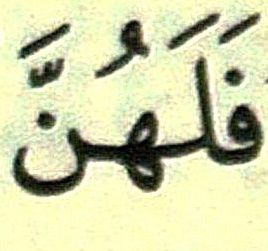 فَلَهُنَّ